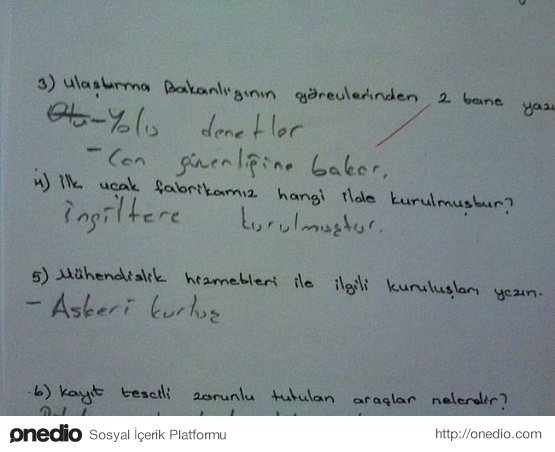 3) Ulaştırma Bakanlığının görevlerinden 2 tane yazı
Otu - Yolu denetler
- Can güvenliğine bakar.
4) İlk uçak fabrikamız hangi ilde kurulmuştur?
İngiltere kurulmuştur.
5) Mühendislik hizmetleri ile ilgili kuruluşları yazın.
- Askeri kurluş
6) Kayıt tescili zorunlu tutulan araçlar nelerdir?
onedio Sosyal İçerik Platformu http://onedio.com